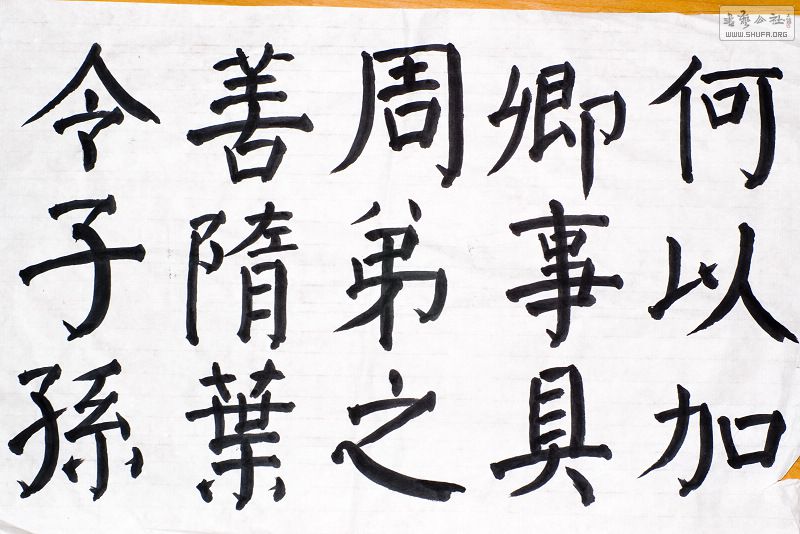 何以加
卿事具
周弟之
善隋葉
令子孫
書藝公社
WWW.SHUFA.ORG